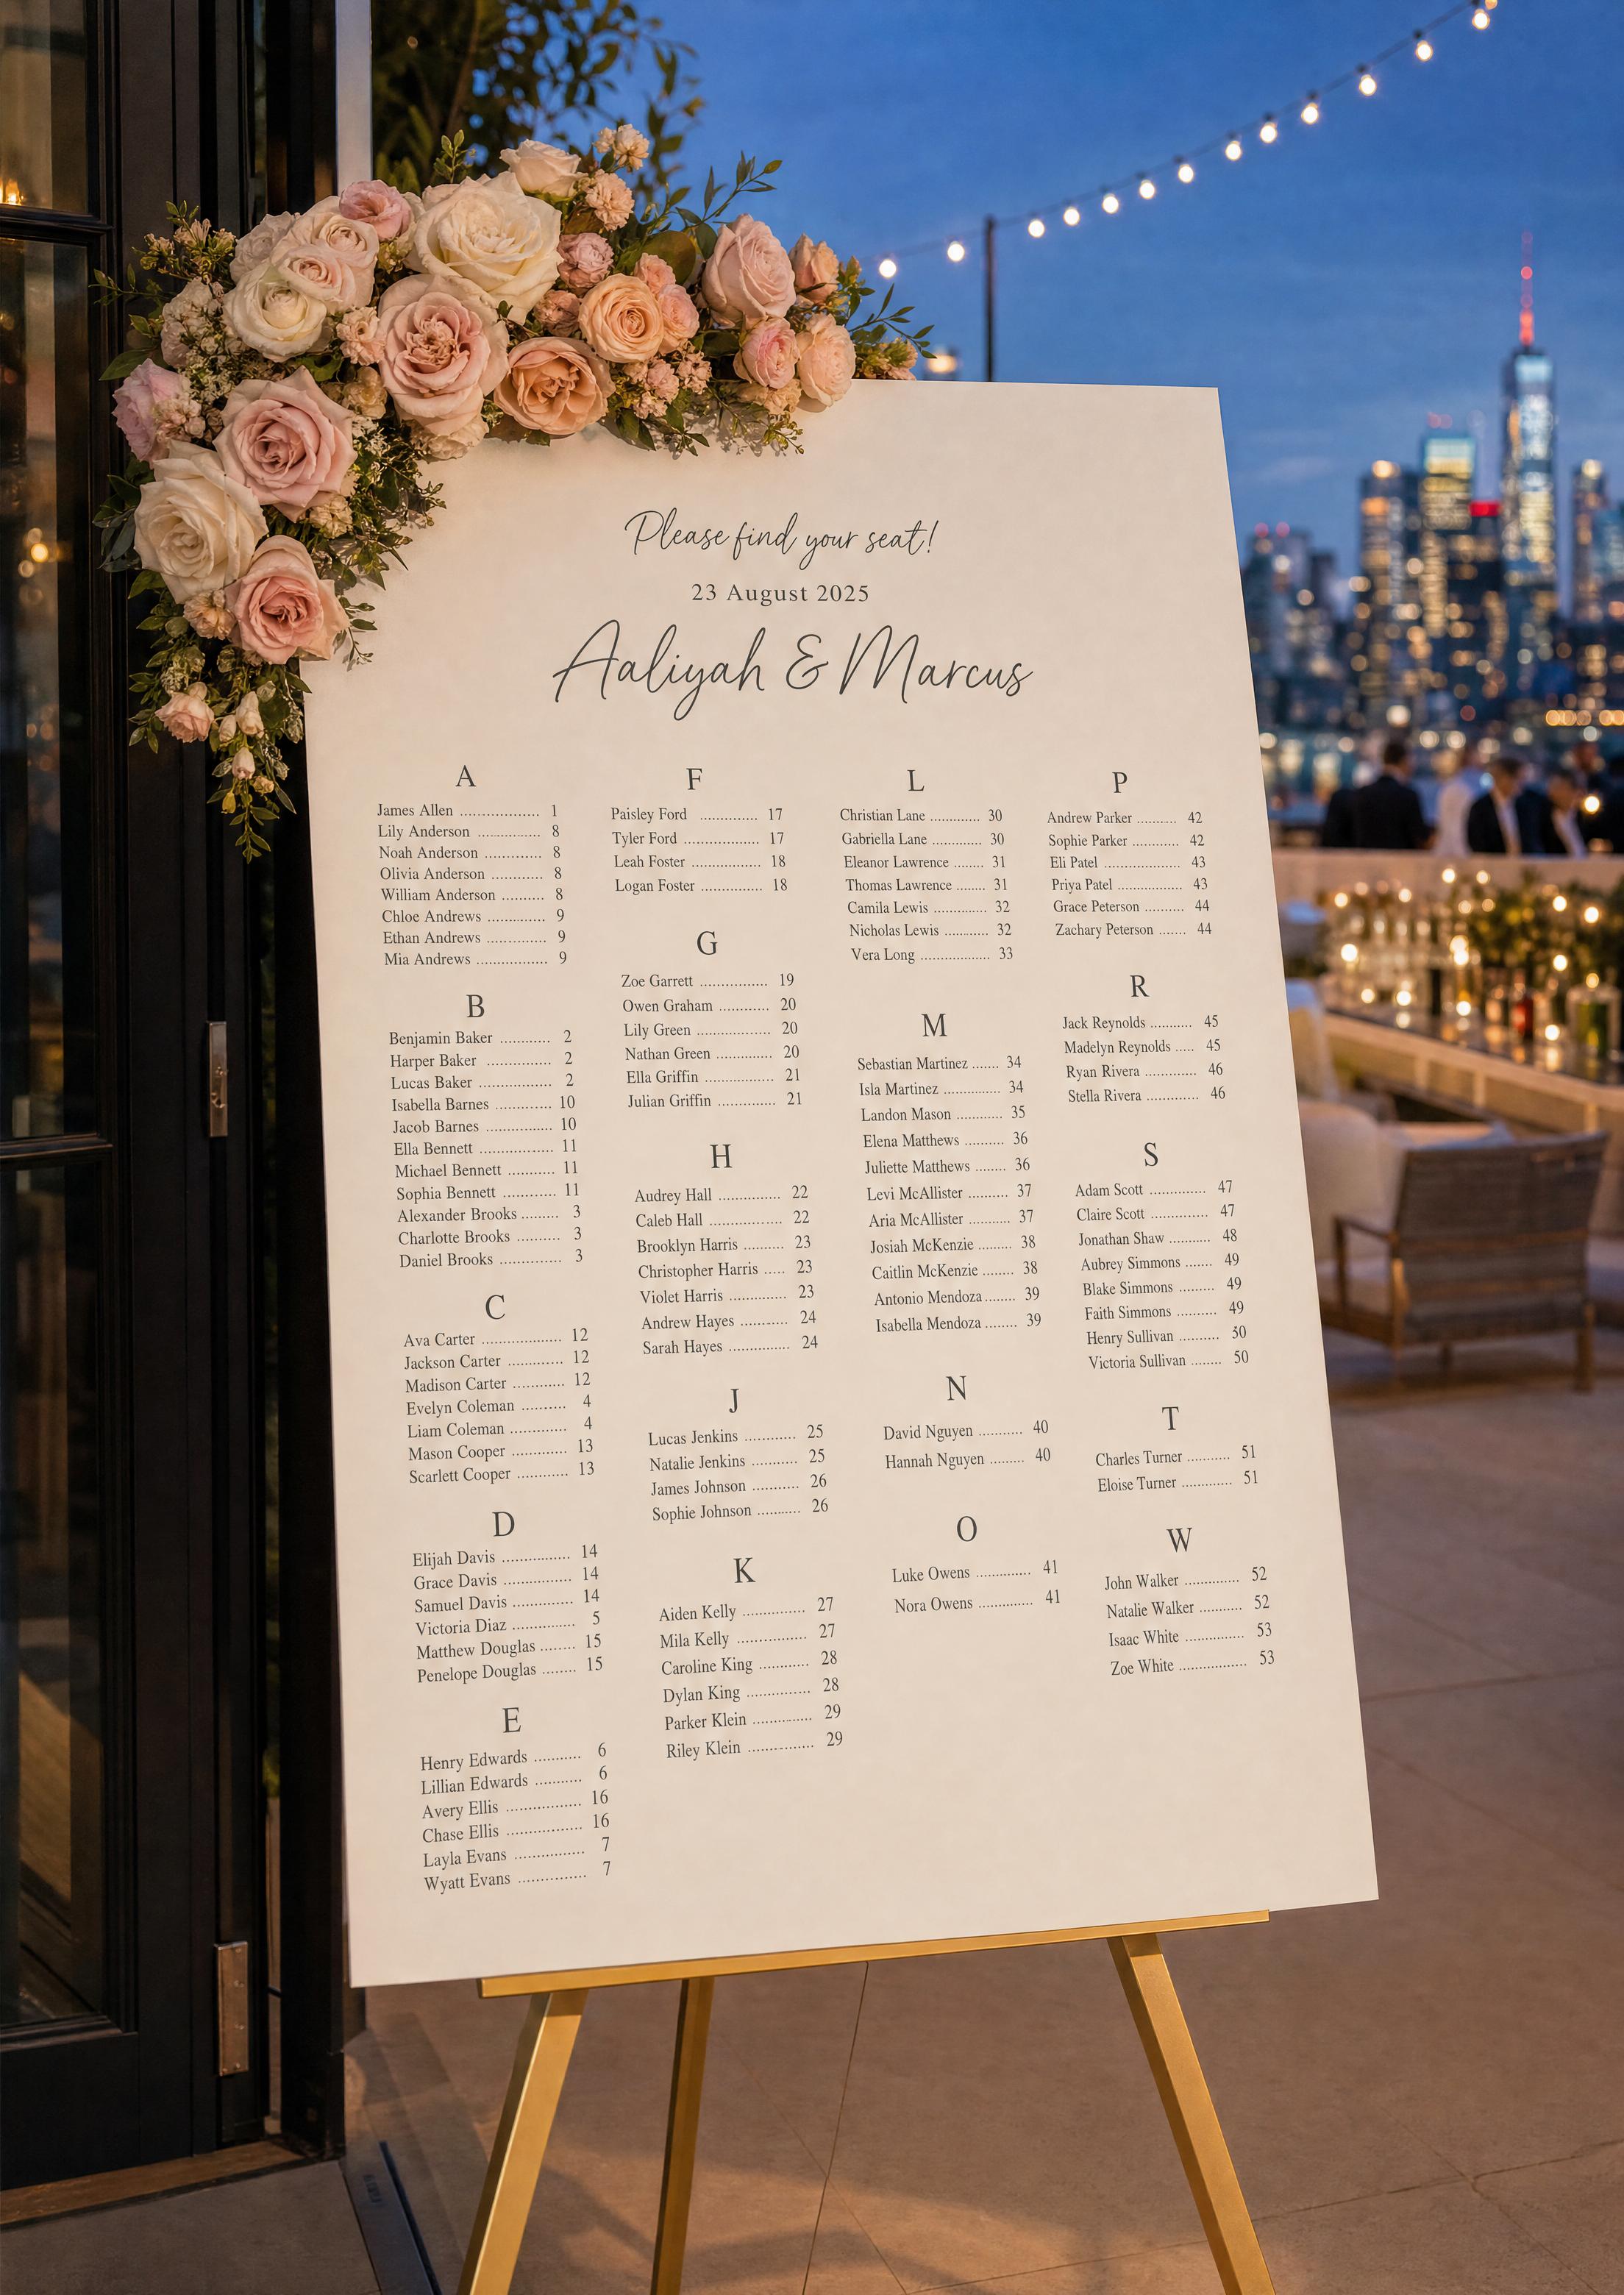 Please find your seat!
23 August 2025
Aaliyah & Marcus
A
James Allen .................. 1
Lily Anderson .............. 8
Noah Anderson ............. 8
Olivia Anderson ............ 8
William Anderson .......... 8
Chloe Andrews ............. 9
Ethan Andrews ............. 9
Mia Andrews ................ 9
B
Benjamin Baker ........... 2
Harper Baker ................ 2
Lucas Baker ................ 2
Isabella Barnes ............ 10
Jacob Barnes ............... 10
Ella Bennett ................. 11
Michael Bennett ........... 11
Sophia Bennett ............ 11
Alexander Brooks ......... 3
Charlotte Brooks .......... 3
Daniel Brooks ............. 3
C
Ava Carter .................. 12
Jackson Carter ............ 12
Madison Carter ............ 12
Evelyn Coleman .......... 4
Liam Coleman ............. 4
Mason Cooper ............. 13
Scarlett Cooper ............ 13
D
Elijah Davis ................ 14
Grace Davis ................ 14
Samuel Davis .............. 14
Victoria Diaz .............. 5
Matthew Douglas ........ 15
Penelope Douglas ........ 15
E
Henry Edwards ........... 6
Lillian Edwards ........... 6
Avery Ellis ................. 16
Chase Ellis ................. 16
Layla Evans ................ 7
Wyatt Evans ............... 7
F
Paisley Ford ............. 17
Tyler Ford ................. 17
Leah Foster ................ 18
Logan Foster .............. 18
G
Zoe Garrett ................ 19
Owen Graham ............ 20
Lily Green ................. 20
Nathan Green ............. 20
Ella Griffin ................ 21
Julian Griffin ............. 21
H
Audrey Hall .............. 22
Caleb Hall ................. 22
Brooklyn Harris .......... 23
Christopher Harris ..... 23
Violet Harris ............. 23
Andrew Hayes ........... 24
Sarah Hayes .............. 24
J
Lucas Jenkins ............ 25
Natalie Jenkins .......... 25
James Johnson ........... 26
Sophie Johnson .......... 26
K
Aiden Kelly .............. 27
Mila Kelly ................ 27
Caroline King ............ 28
Dylan King ............... 28
Parker Klein .............. 29
Riley Klein ............... 29
L
Christian Lane ............ 30
Gabriella Lane ............ 30
Eleanor Lawrence ....... 31
Thomas Lawrence ....... 31
Camila Lewis ............. 32
Nicholas Lewis .......... 32
Vera Long ................. 33
M
Sebastian Martinez ...... 34
Isla Martinez ............. 34
Landon Mason ........... 35
Elena Matthews .......... 36
Juliette Matthews ....... 36
Levi McAllister .......... 37
Aria McAllister .......... 37
Josiah McKenzie ........ 38
Caitlin McKenzie ....... 38
Antonio Mendoza ....... 39
Isabella Mendoza ....... 39
N
David Nguyen .......... 40
Hannah Nguyen ........ 40
O
Luke Owens ............. 41
Nora Owens ............. 41
P
Andrew Parker .......... 42
Sophie Parker ........... 42
Eli Patel .................. 43
Priya Patel ............... 43
Grace Peterson ......... 44
Zachary Peterson ...... 44
R
Jack Reynolds .......... 45
Madelyn Reynolds ..... 45
Ryan Rivera ............ 46
Stella Rivera ............ 46
S
Adam Scott ............. 47
Claire Scott ............. 47
Jonathan Shaw ......... 48
Aubrey Simmons ...... 49
Blake Simmons ........ 49
Faith Simmons ......... 49
Henry Sullivan ......... 50
Victoria Sullivan ....... 50
T
Charles Turner .......... 51
Eloise Turner ............ 51
W
John Walker ............. 52
Natalie Walker .......... 52
Isaac White .............. 53
Zoe White ................ 53